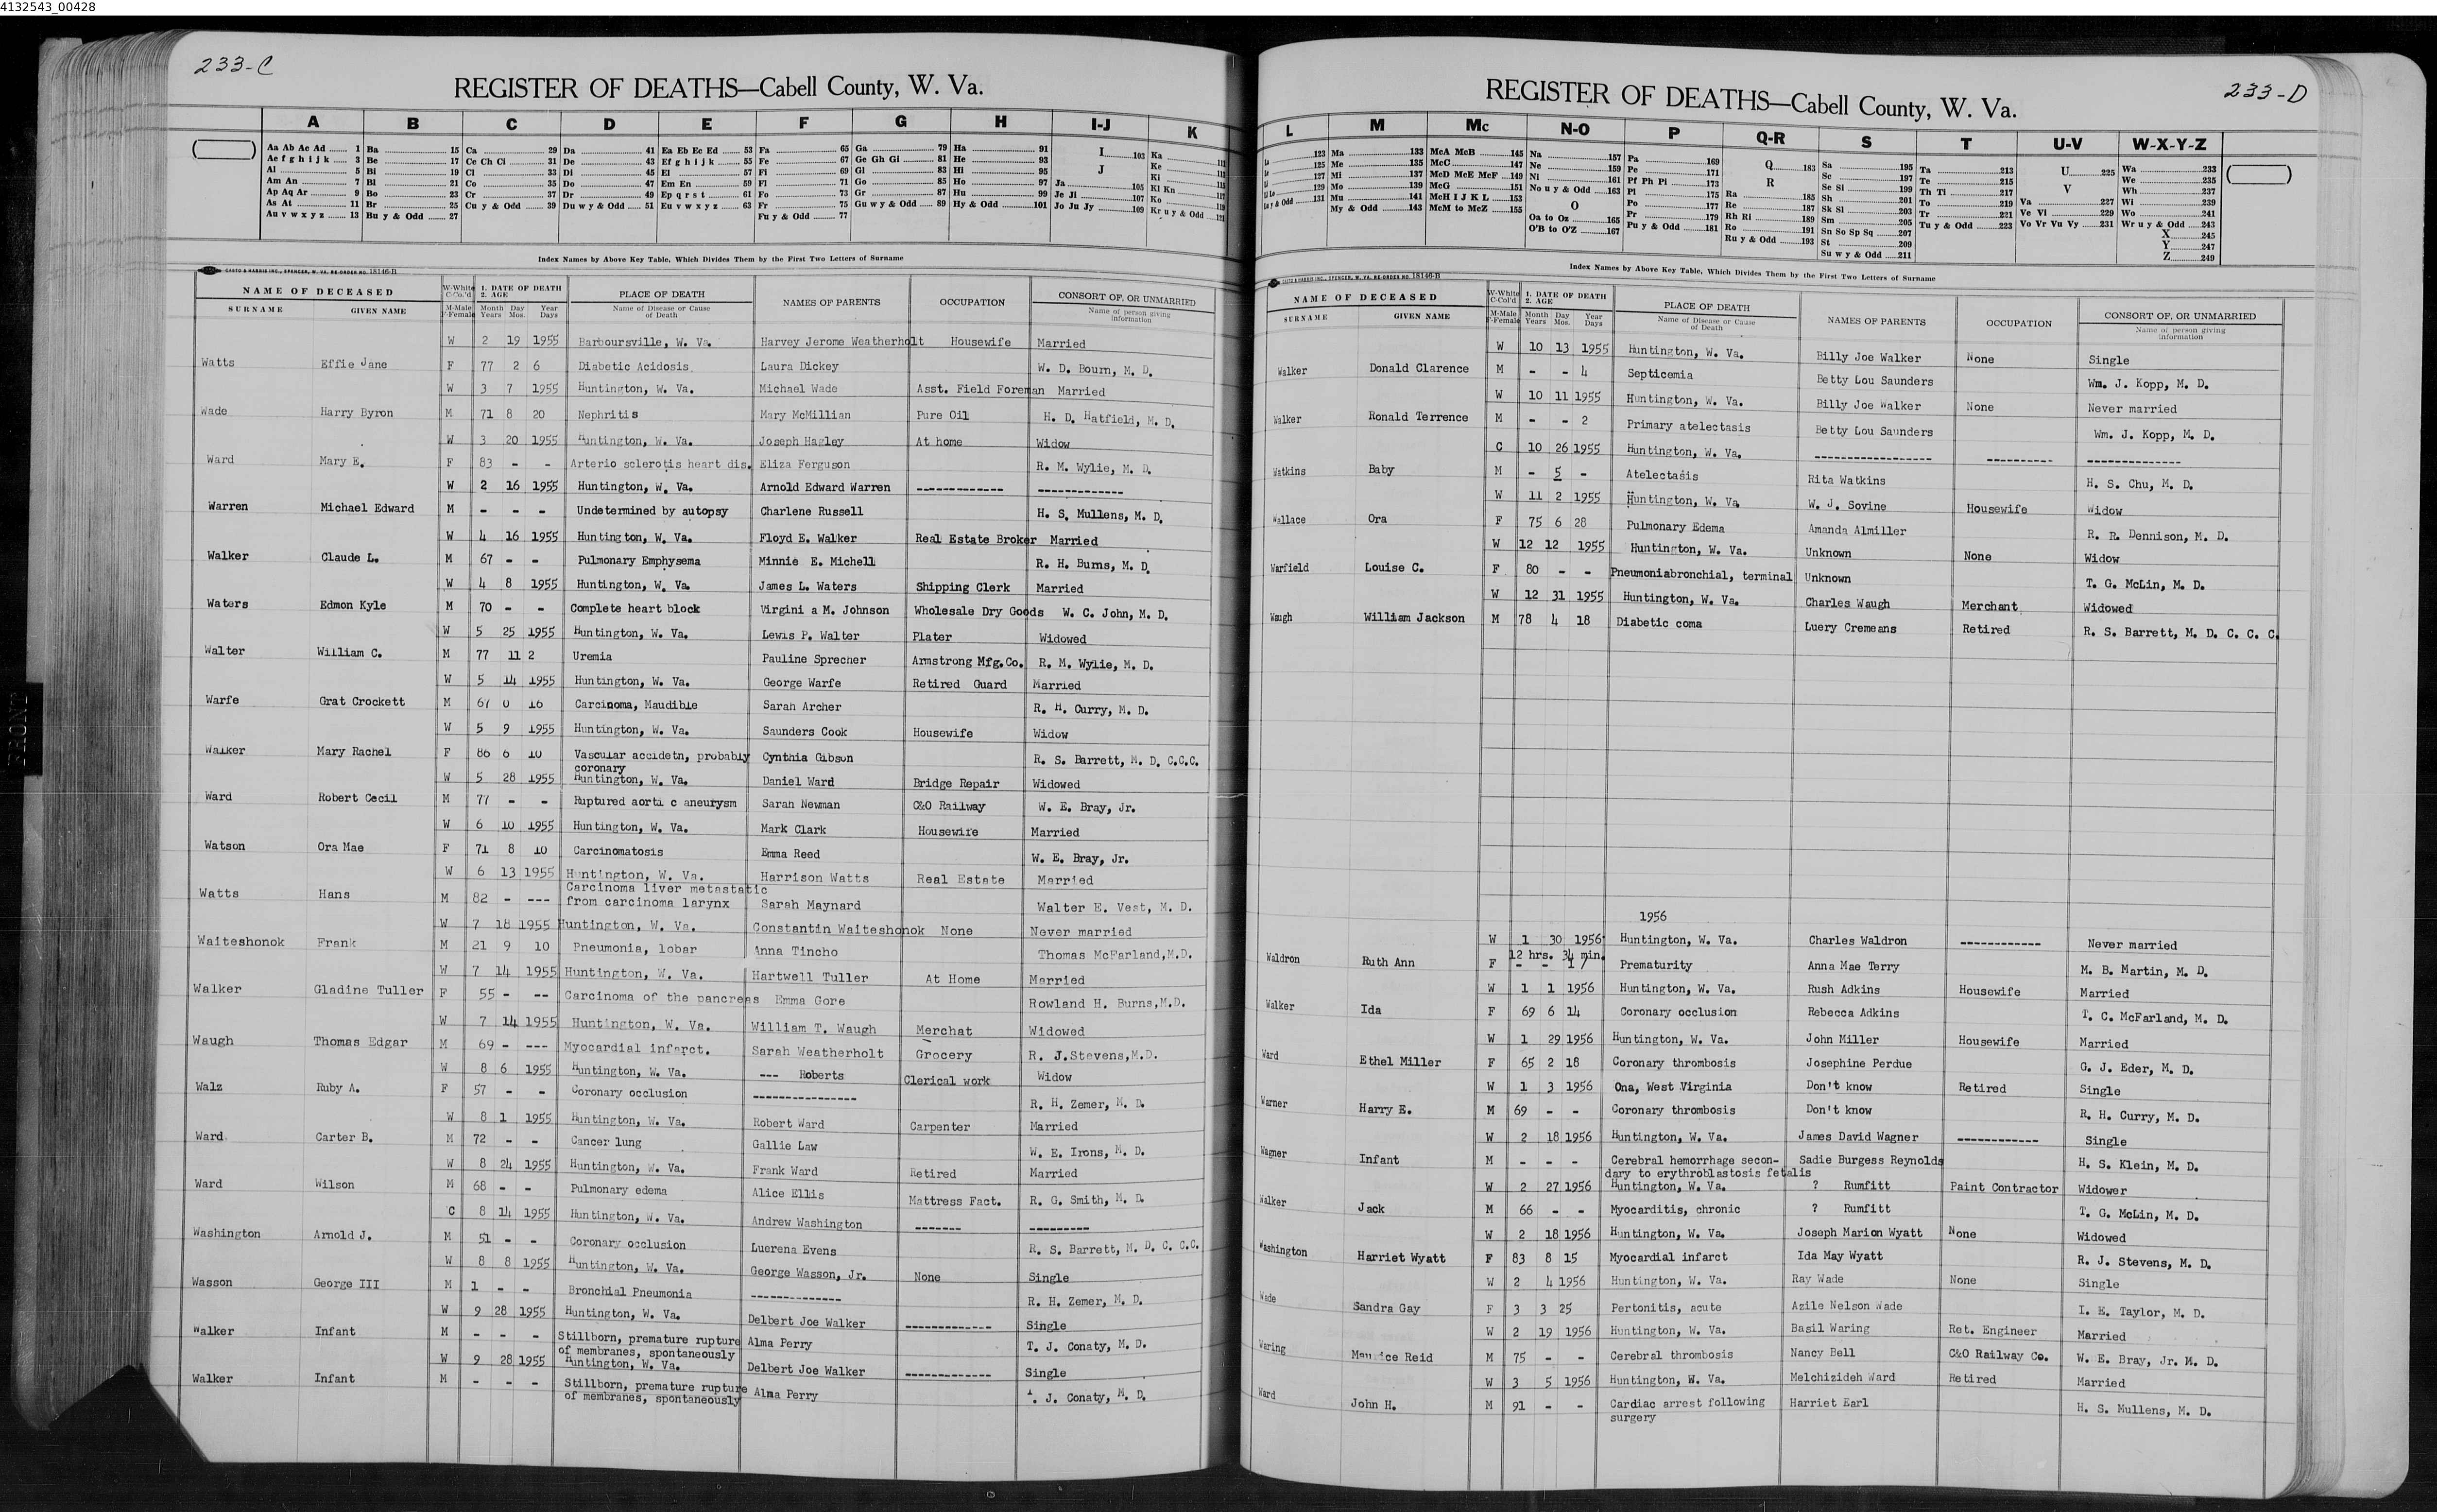 4132543_00428
233-C
REGISTER OF DEATHS—Cabell County, W. Va.
A B C D E F G H I-J K
Aa Ab Ac Ad 1 Ba 15 Ca 29 Da 41 Ea Eb Ec Ed 53 Fa 65 Ga 79 Ha 91 I 103 Ka
Ae f g h i j k 3 Be 17 Ce Ch Ci 31 De 43 Ef g h i j k 55 Fe 67 Ge Gh Gi 81 He 93 J Ke
Al 5 Bi 19 Cl 33 Di 45 El 57 Fi 69 Gl 83 Hi 95 Ki
Am An 7 Bl 21 Co 35 Do 47 Em En 59 Fl 71 Go 85 Ho 97 Ja 105 Kl Kn
Ap Aq Ar 9 Bo 23 Cr 37 Dr 49 Ep q r s t 61 Fo 73 Gr 87 Hu 99 Je Ji 107 Ko
As At 11 Br 25 Cu y & Odd 39 Du w y & Odd 51 Eu v w x y z 63 Fr 75 Gu w y & Odd 89 Hy & Odd 101 Jo Ju Jy 109 Kr u y & Odd
Au v w x y z 13 Bu y & Odd 27 Fu y & Odd 77
Index Names by Above Key Table, Which Divides Them by the First Two Letters of Surname
CASTO & HARRIS INC., SPENCER, W. VA. RE-ORDER NO. 18146-B
NAME OF DECEASED W-White C-Col'd 1. DATE OF DEATH 2. AGE PLACE OF DEATH NAMES OF PARENTS OCCUPATION CONSORT OF, OR UNMARRIED
SURNAME GIVEN NAME M-Male F-Female Month Years Day Mos. Year Days Name of Disease or Cause of Death Name of person giving information
W 2 19 1955 Barboursville, W. Va. Harvey Jerome Weatherholt Housewife Married
Watts Effie Jane F 77 2 6 Diabetic Acidosis Laura Dickey W. D. Bourn, M. D.
W 3 7 1955 Huntington, W. Va. Michael Wade Asst. Field Foreman Married
Wade Harry Byron M 71 8 20 Nephritis Mary McMillian Pure Oil H. D. Hatfield, M. D.
W 3 20 1955 Huntington, W. Va. Joseph Hagley At home Widow
Ward Mary E. F 83 - - Arterio sclerotis heart dis. Eliza Ferguson R. M. Wylie, M. D.
W 2 16 1955 Huntington, W. Va. Arnold Edward Warren ------------ ------------
Warren Michael Edward M - - - Undetermined by autopsy Charlene Russell H. S. Mullens, M. D.
W 4 16 1955 Huntington, W. Va. Floyd E. Walker Real Estate Broker Married
Walker Claude L. M 67 - - Pulmonary Emphysema Minnie E. Michell R. H. Burns, M. D.
W 4 8 1955 Huntington, W. Va. James L. Waters Shipping Clerk Married
Waters Edmon Kyle M 70 - - Complete heart block Virgini a M. Johnson Wholesale Dry Goods W. C. John, M. D.
W 5 25 1955 Huntington, W. Va. Lewis P. Walter Plater Widowed
Walter William C. M 77 11 2 Uremia Pauline Sprecher Armstrong Mfg.Co. R. M. Wylie, M. D.
W 5 14 1955 Huntington, W. Va. George Warfe Retired Guard Married
Warfe Grat Crockett M 67 0 16 Carcinoma, Maudible Sarah Archer R. H. Curry, M. D.
W 5 9 1955 Huntington, W. Va. Saunders Cook Housewife Widow
Walker Mary Rachel F 86 6 10 Vascular accidetn, probably Cynthia Gibson R. S. Barrett, M. D. C.C.C.
coronary
W 5 28 1955 Huntington, W. Va. Daniel Ward Bridge Repair Widowed
Ward Robert Cecil M 77 - - Ruptured aorti c aneurysm Sarah Newman C&O Railway W. E. Bray, Jr.
W 6 10 1955 Huntington, W. Va. Mark Clark Housewife Married
Watson Ora Mae F 71 8 10 Carcinomatosis Emma Reed W. E. Bray, Jr.
W 6 13 1955 Huntington, W. Va. Harrison Watts Real Estate Married
Carcinoma liver metastatic
Watts Hans M 82 - --- from carcinoma larynx Sarah Maynard Walter E. Vest, M. D.
W 7 18 1955 Huntington, W. Va. Constantin Waiteshonok None Never married
Waiteshonok Frank M 21 9 10 Pneumonia, lobar Anna Tincho Thomas McFarland,M.D.
W 7 14 1955 Huntington, W. Va. Hartwell Tuller At Home Married
Walker Gladine Tuller F 55 - -- Carcinoma of the pancreas Emma Gore Rowland H. Burns,M.D.
W 7 14 1955 Huntington, W. Va. William T. Waugh Merchat Widowed
Waugh Thomas Edgar M 69 - --- Myocardial infarct. Sarah Weatherholt Grocery R. J.Stevens,M.D.
W 8 6 1955 Huntington, W. Va. --- Roberts Clerical work Widow
Walz Ruby A. F 57 - - Coronary occlusion --------------- R. H. Zemer, M. D.
W 8 1 1955 Huntington, W. Va. Robert Ward Carpenter Married
Ward Carter B. M 72 - - Cancer lung Gallie Law W. E. Irons, M. D.
W 8 24 1955 Huntington, W. Va. Frank Ward Retired Married
Ward Wilson M 68 - - Pulmonary edema Alice Ellis Mattress Fact. R. G. Smith, M. D.
C 8 14 1955 Huntington, W. Va. Andrew Washington ------- ---------
Washington Arnold J. M 51 - - Coronary occlusion Luerena Evens R. S. Barrett, M. D. C. C.C.
W 8 8 1955 Huntington, W. Va. George Wasson, Jr. None Single
Wasson George III M 1 - - Bronchial Pneumonia -------------- R. H. Zemer, M. D.
W 9 28 1955 Huntington, W. Va. Delbert Joe Walker ------------- Single
Walker Infant M - - - Stillborn, premature rupture Alma Perry T. J. Conaty, M. D.
of membranes, spontaneously
W 9 28 1955 Huntington, W. Va. Delbert Joe Walker ------------- Single
Walker Infant M - - - Stillborn, premature rupture Alma Perry . J. Conaty, M. D.
of membranes, spontaneously
233-D
REGISTER OF DEATHS—Cabell County, W. Va.
L M Mc N-O P Q-R S T U-V W-X-Y-Z
123 Ma 133 McA McB 145 Na 157 Pa 169 Q 183 Sa 195 Ta 213 U 225 Wa 233
125 Me 135 McC 147 Ne 159 Pe 171 R Sc 197 Te 215 V We 235
127 Mi 137 McD McE McF 149 Ni 161 Pf Ph Pi 173 Ra 185 Se Si 199 Th Ti 217 Va 227 Wh 237
129 Mo 139 McG 151 No u y & Odd 163 Pl 175 Re 187 Sh 201 To 219 Ve Vi 229 Wi 239
131 Mu 141 McH I J K L 153 O Po 177 Rh Ri 189 Sk Sl 203 Tr 221 Vo Vr Vu Vy 231 Wo 241
My & Odd 143 McM to McZ 155 Oa to Oz 165 Pr 179 Ro 191 Sm 205 Tu y & Odd 223 Wr u y & Odd 243
O'B to O'Z 167 Pu y & Odd 181 Ru y & Odd 193 Sn So Sp Sq 207 X 245
St 209 Y 247
Su w y & Odd 211 Z 249
Index Names by Above Key Table, Which Divides Them by the First Two Letters of Surname
CASTO & HARRIS INC., SPENCER, W. VA. RE-ORDER NO. 18146-B
NAME OF DECEASED W-White C-Col'd 1. DATE OF DEATH 2. AGE PLACE OF DEATH NAMES OF PARENTS OCCUPATION CONSORT OF, OR UNMARRIED
SURNAME GIVEN NAME M-Male F-Female Month Years Day Mos. Year Days Name of Disease or Cause of Death Name of person giving information
W 10 13 1955 Huntington, W. Va. Billy Joe Walker None Single
Walker Donald Clarence M - - 4 Septicemia Betty Lou Saunders Wm. J. Kopp, M. D.
W 10 11 1955 Huntington, W. Va. Billy Joe Walker None Never married
Walker Ronald Terrence M - - 2 Primary atelectasis Betty Lou Saunders Wm. J. Kopp, M. D.
C 10 26 1955 Huntington, W. Va. ----------------- ---------- --------------
Watkins Baby M - 5 - Atelectasis Rita Watkins H. S. Chu, M. D.
W 11 2 1955 Huntington, W. Va W. J. Sovine Housewife Widow
Wallace Ora F 75 6 28 Pulmonary Edema Amanda Almiller R. R. Dennison, M. D.
W 12 12 1955 Huntington, W. Va. Unknown None Widow
Warfield Louise C. F 80 - - Pneumoniabronchial, terminal Unknown T. G. McLin, M. D.
W 12 31 1955 Huntington, W. Va. Charles Waugh Merchant Widowed
Waugh William Jackson M 78 4 18 Diabetic coma Luery Cremeans Retired R. S. Barrett, M. D. C. C. C.
1956
W 1 30 1956 Huntington, W. Va. Charles Waldron ------------ Never married
12 hrs. 34 min.
Waldron Ruth Ann F - - 1/ Prematurity Anna Mae Terry M. B. Martin, M. D.
W 1 1 1956 Huntington, W. Va. Rush Adkins Housewife Married
Walker Ida F 69 6 14 Coronary occlusion Rebecca Adkins T. C. McFarland, M. D.
W 1 29 1956 Huntington, W. Va. John Miller Housewife Married
Ward Ethel Miller F 65 2 18 Coronary thrombosis Josephine Perdue G. J. Eder, M. D.
W 1 3 1956 Ona, West Virginia Don't know Retired Single
Warner Harry E. M 69 - - Coronary thrombosis Don't know R. H. Curry, M. D.
W 2 18 1956 Huntington, W. Va. James David Wagner ------------ Single
Wagner Infant M - - - Cerebral hemorrhage secon- Sadie Burgess Reynolds H. S. Klein, M. D.
dary to erythroblastosis fetalis
W 2 27 1956 Huntington, W. Va. ? Rumfitt Paint Contractor Widower
Walker Jack M 66 - - Myocarditis, chronic ? Rumfitt T. G. McLin, M. D.
W 2 18 1956 Huntington, W. Va. Joseph Marion Wyatt None Widowed
Washington Harriet Wyatt F 83 8 15 Myocardial infarct Ida May Wyatt R. J. Stevens, M. D.
W 2 4 1956 Huntington, W. Va. Ray Wade None Single
Wade Sandra Gay F 3 3 25 Pertonitis, acute Azile Nelson Wade I. E. Taylor, M. D.
W 2 19 1956 Huntington, W. Va. Basil Waring Ret. Engineer Married
Waring Maurice Reid M 75 - - Cerebral thrombosis Nancy Bell C&O Railway Co. W. E. Bray, Jr. M. D.
W 3 5 1956 Huntington, W. Va. Melchizideh Ward Retired Married
Ward John H. M 91 - - Cardiac arrest following Harriet Earl H. S. Mullens, M. D.
surgery